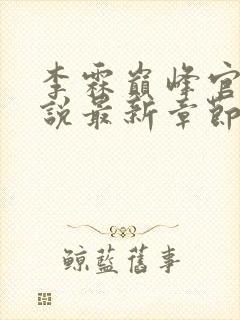 李霖巔峰官
說最新章節
鯨藍舊事